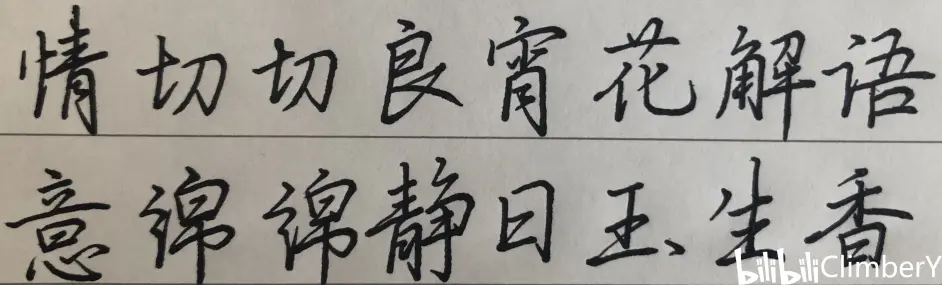 情切切良宵花解语
意绵绵静日玉生香
bilibili ClimberY